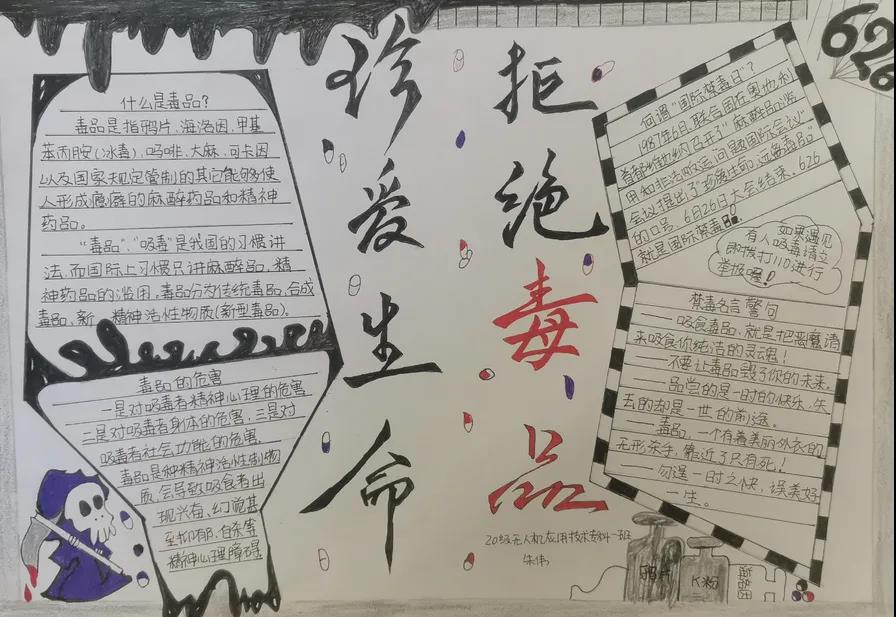 珍爱生命
拒绝毒品
626
什么是毒品?
毒品是指鸦片,海洛因,甲基
苯丙胺(冰毒),吗啡,大麻,可卡因
以及国家规定管制的其它能够使
人形成瘾癖的麻醉药品和精神
药品。
“毒品”,“吸毒”是我国的习惯讲
法,而国际上习惯只讲麻醉品,精
神药品的滥用,毒品分为传统毒品,合成
毒品,新 精神活性物质(新型毒品)。
毒品的危害
一是对吸毒者精神心理的危害
二是对吸毒者身体的危害,三是对
吸毒者社会功能的危害,
毒品是种精神活性制物
质,会导致吸食者出
现兴奋,幻觉甚
至抑郁,自杀等
精神心理障碍
何谓“国际禁毒日”?
1987年6月,联合国在奥地利
首都维也纳召开了“麻醉品滥
用和非法贩运问题国际会议”
会议提出了“珍爱生命,远离毒品”
的口号。6月26日大会结束,626
就是国际禁毒日。
如果遇见
有人吸毒请立
即拨打110进行
举报喔!
禁毒名言警句
——吸食毒品,就是把恶魔请
来吸食你纯洁的灵魂!
——不要让毒品毁了你的未来。
——品尝的是一时的快乐,失
去的却是一世的前途。
——毒品,一个有着美丽外衣的
无形杀手,靠近了只有死!
——勿逞一时之快,误美好
一生。
20级无人机应用技术专科一班
朱伟
鸦片
K粉